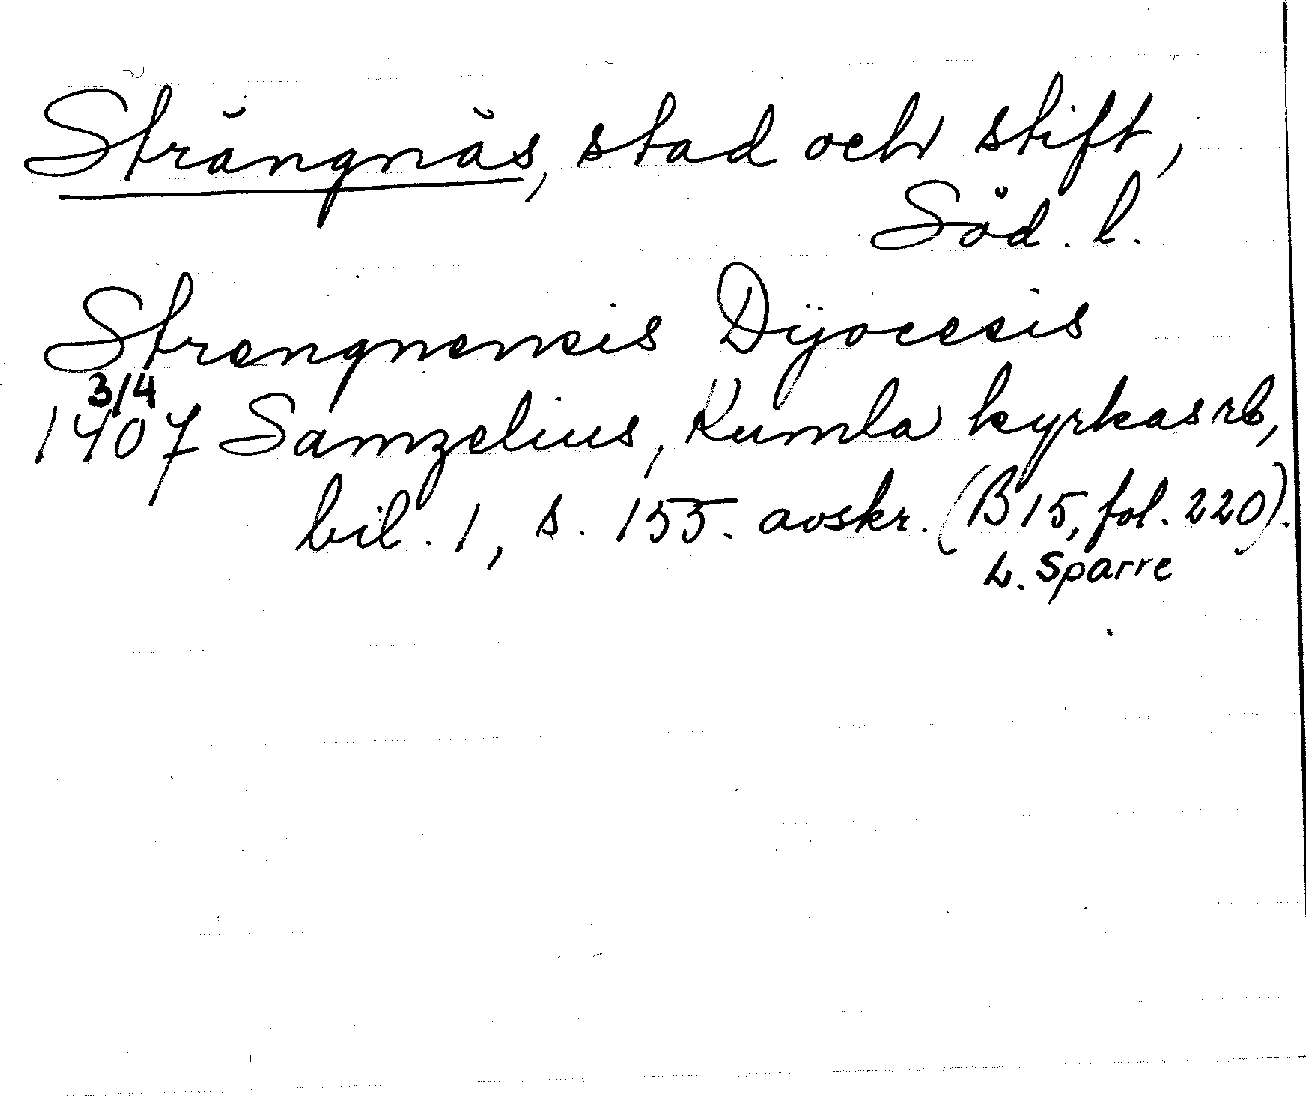 Strängnäs, stad och stift,
Söd. l.
Strengnensis Dÿocesis
3/4
1407 Samzelius, Kumla kyrkas rb,
bil. 1, s. 155. avskr. (B 15, fol. 220).
L. Sparre